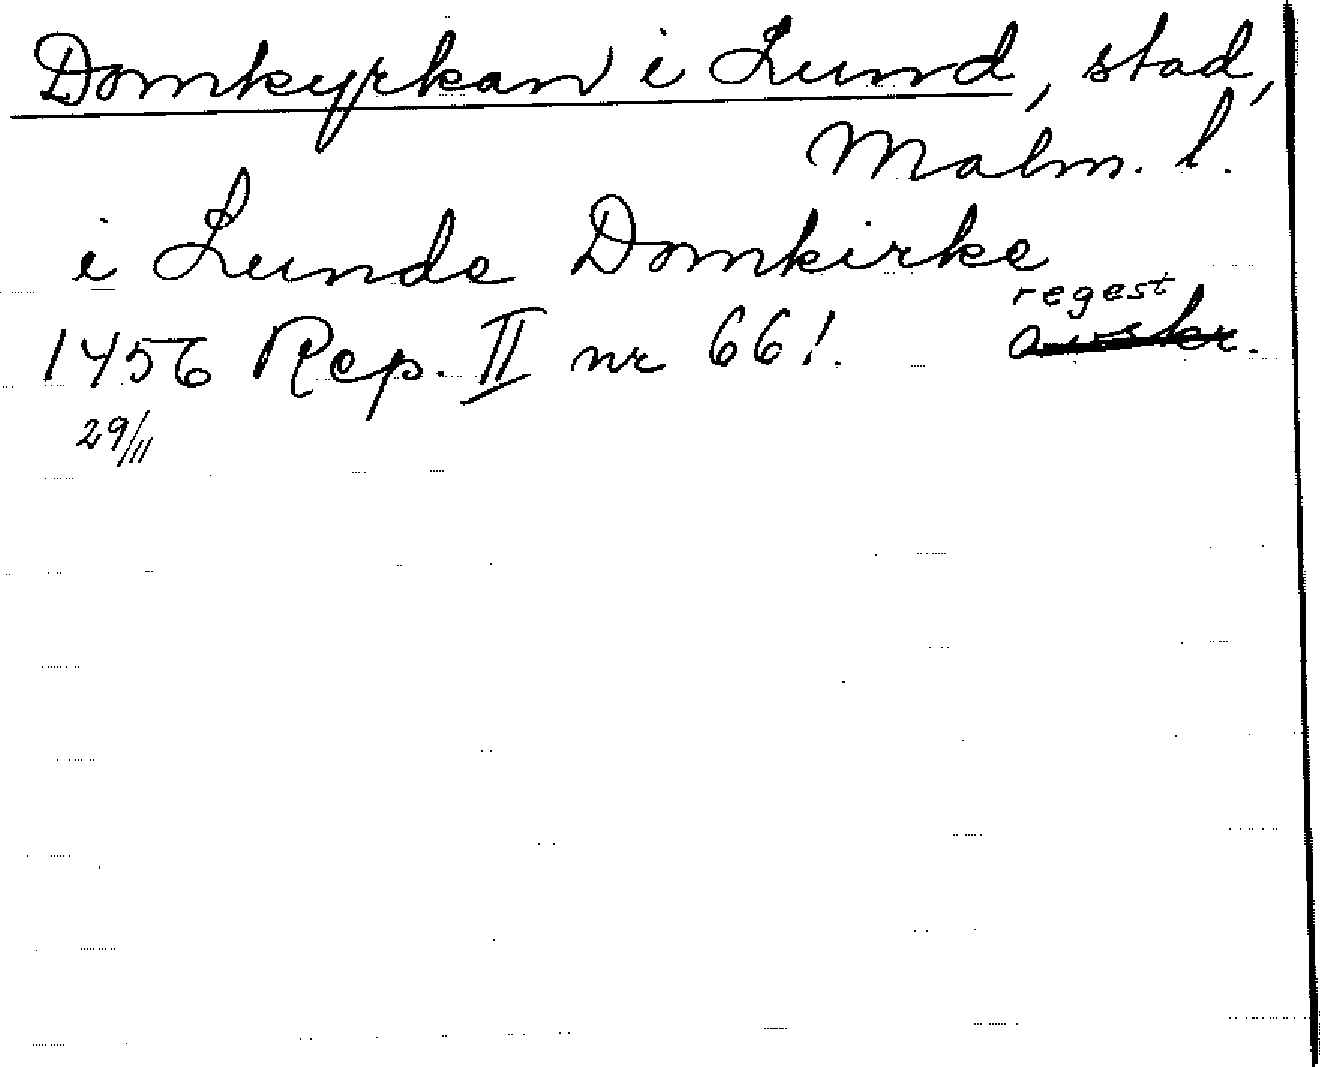 Domkyrkan i Lund, stad,
Malm. l.
i Lunde Domkirke
regest
1456 Rep. II nr 661. avskr.
29/11